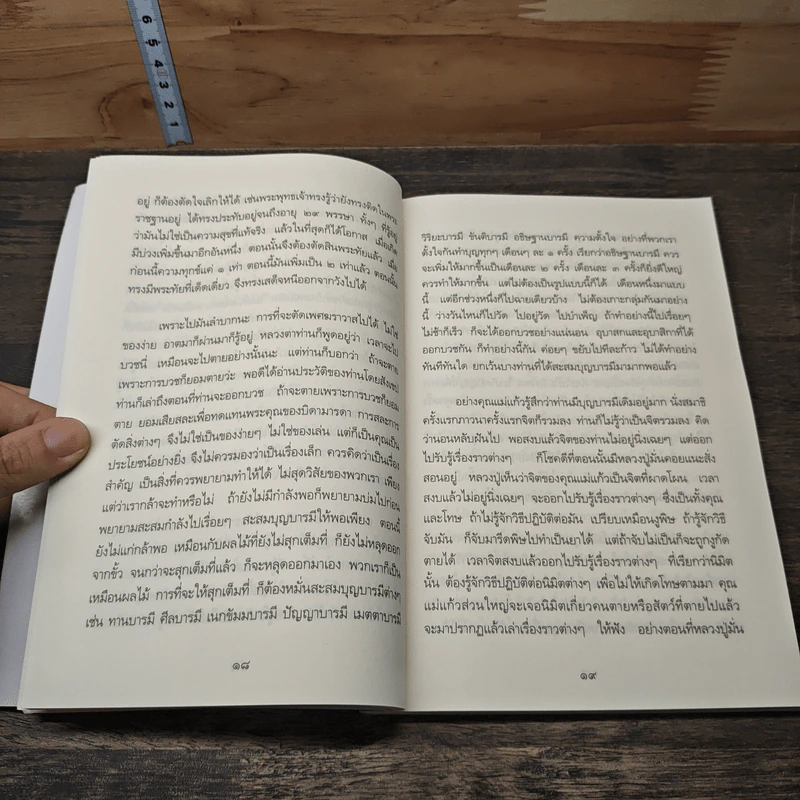 6 5 4 3 2 1
อยู่ ก็ต้องตัดใจเลิกให้ได้ เช่นพระพุทธเจ้าทรงรู้ว่ายังทรงติดในพระ
ราชฐานอยู่ ได้ทรงประทับอยู่จนถึงอายุ ๒๙ พรรษา ทั้งๆ ที่รู้อยู่
ว่ามันไม่ใช่เป็นความสุขที่แท้จริง แล้วในที่สุดก็ได้โอกาส เมื่อเกิด
มีบ่วงเพิ่มขึ้นมาอีกอันหนึ่ง ตอนนั้นจึงต้องตัดสินพระทัยแล้ว เมื่อ
ก่อนนี้ความทุกข์แค่ ๑ เท่า ตอนนี้มันเพิ่มเป็น ๒ เท่าแล้ว ตอนนั้น
ทรงมีพระทัยที่เด็ดเดี่ยว จึงทรงเสด็จหนีออกจากวังไปได้
เพราะไปมันลำบากนะ การที่จะตัดเพศฆราวาสไปได้ ไม่ใช่
ของง่าย อาตมาก็ผ่านมาก็รู้อยู่ หลวงตาท่านก็พูดอยู่ว่า เวลาจะไป
บวชนี่ เหมือนจะไปตายอย่างนั้นนะ แต่ท่านก็บอกว่า ถ้าจะตาย
เพราะการบวชก็ยอมตายว่ะ พอดีได้อ่านประวัติของท่านโดยสังเขป
ท่านก็เล่าถึงตอนที่ท่านจะออกบวช ถ้าจะตายเพราะการบวชก็ยอม
ตาย ยอมเสียสละเพื่อทดแทนพระคุณของบิดามารดา การสละการ
ตัดสิ่งต่างๆ จึงไม่ใช่เป็นของง่ายๆ ไม่ใช่ของเล่น แต่ก็เป็นคุณเป็น
ประโยชน์อย่างยิ่ง จึงไม่ควรมองว่าเป็นเรื่องเล็ก ควรคิดว่าเป็นเรื่อง
สำคัญ เป็นสิ่งที่ควรพยายามทำให้ได้ ไม่สุดวิสัยของพวกเรา เพียง
แต่ว่าเรากล้าจะทำหรือไม่ ถ้ายังไม่มีกำลังพอก็พยายามบ่มไปก่อน
พยายามสะสมกำลังไปเรื่อยๆ สะสมบุญบารมีให้พอเพียง ตอนนี้
ยังไม่แก่กล้าพอ เหมือนกับผลไม้ที่ยังไม่สุกเต็มที่ ก็ยังไม่หลุดออก
จากขั้ว จนกว่าจะสุกเต็มที่แล้ว ก็จะหลุดออกมาเอง พวกเราก็เป็น
เหมือนผลไม้ การที่จะให้สุกเต็มที่ ก็ต้องหมั่นสะสมบุญบารมีต่างๆ
เช่น ทานบารมี ศีลบารมี เนกขัมมบารมี ปัญญาบารมี เมตตาบารมี
๑๘
วิริยะบารมี ขันติบารมี อธิษฐานบารมี ความตั้งใจ อย่างที่พวกเรา
ตั้งใจกันทำบุญทุกๆ เดือนๆ ละ ๑ ครั้ง เรียกว่าอธิษฐานบารมี ควร
จะเพิ่มให้มากขึ้นเป็นเดือนละ ๒ ครั้ง เดือนละ ๓ ครั้งก็ยิ่งดีใหญ่
ควรทำให้มากขึ้น แต่ไม่ต้องเป็นรูปแบบนี้ก็ได้ เดือนหนึ่งมาแบบ
นี้ แต่อีกช่วงหนึ่งก็ไปฉายเดี่ยวบ้าง ไม่ต้องเกาะกลุ่มกันมาอย่าง
นี้ ว่างวันไหนก็ไปวัด ไปอยู่วัด ไปบำเพ็ญ ถ้าทำอย่างนี้ไปเรื่อยๆ
ไม่ช้าก็เร็ว ก็จะได้ออกบวชอย่างแน่นอน อุบาสกและอุบาสิกาที่ได้
ออกบวชกัน ก็ทำอย่างนี้กัน ค่อยๆ ขยับไปทีละก้าว ไม่ได้ทำอย่าง
ทันทีทันใด ยกเว้นบางท่านที่ได้สะสมบุญบารมีมามากพอแล้ว
อย่างคุณแม่แก้วรู้สึกว่าท่านมีบุญบารมีเดิมอยู่มาก นั่งสมาธิ
ครั้งแรกภาวนาครั้งแรกจิตก็รวมลง ท่านก็ไม่รู้ว่าเป็นจิตรวมลง คิด
ว่านอนหลับฝันไป พอสงบแล้วจิตของท่านไม่อยู่นิ่งเฉยๆ แต่ออก
ไปรับรู้เรื่องราวต่างๆ ก็โชคดีที่ตอนนั้นมีหลวงปู่มั่นคอยแนะสั่ง
สอนอยู่ หลวงปู่เห็นว่าจิตของคุณแม่แก้วเป็นจิตที่ผาดโผน เวลา
สงบแล้วไม่อยู่นิ่งเฉยๆ จะออกไปรับรู้เรื่องราวต่างๆ ซึ่งเป็นทั้งคุณ
และโทษ ถ้าไม่รู้จักวิธีปฏิบัติต่อมัน เปรียบเหมือนงูพิษ ถ้ารู้จักวิธี
จับมัน ก็จับมารีดพิษไปทำเป็นยาได้ แต่ถ้าจับไม่เป็นก็จะถูกงูกัด
ตายได้ เวลาจิตสงบแล้วออกไปรับรู้เรื่องราวต่างๆ ที่เรียกว่านิมิต
นั้น ต้องรู้จักวิธีปฏิบัติต่อนิมิตต่างๆ เพื่อไม่ให้เกิดโทษตามมา คุณ
แม่แก้วส่วนใหญ่จะเจอนิมิตเกี่ยวคนตายหรือสัตว์ที่ตายไปแล้ว
จะมาปรากฏแล้วเล่าเรื่องราวต่างๆ ให้ฟัง อย่างตอนที่หลวงปู่มั่น
๑๙